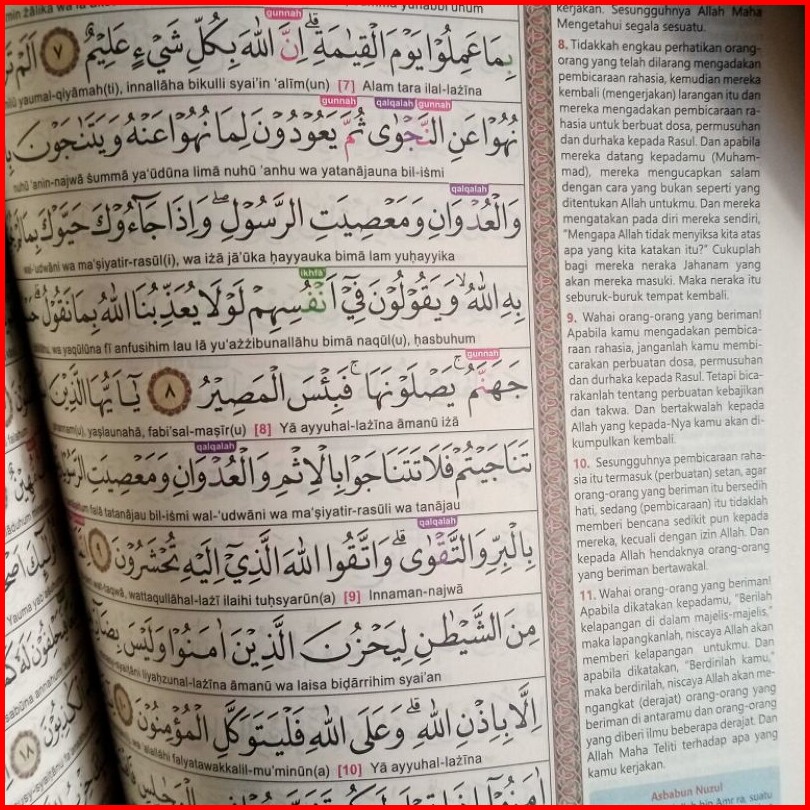 gunnah
بِمَا عَمِلُوْا يَوْمَ الْقِيٰمَةِ ۗ اِنَّ اللّٰهَ بِكُلِّ شَيْءٍ عَلِيْمٌ ٧ اَلَمْ
yaumal-qiyāmah(ti), innallāha bikulli syai'in 'alīm(un) [7] Alam tara ilal-lażīna
gunnah qalqalah gunnah
نُهُوْا عَنِ النَّجْوٰى ثُمَّ يَعُوْدُوْنَ لِمَا نُهُوْا عَنْهُ وَيَتَنٰجَوْنَ
nuhū 'anin-najwā ṡumma ya'ūdūna limā nuhū 'anhu wa yatanājauna bil-iṡmi
qalqalah
وَالْعُدْوَانِ وَمَعْصِيَتِ الرَّسُوْلِ ۖ وَاِذَا جَاۤءُوْكَ حَيَّوْكَ بِمَا
wal-'udwāni wa ma'ṣiyatir-rasūl(i), wa iżā jā'ūka ḥayyauka bimā lam yuḥayyika
ikhfa
بِهِ اللّٰهُ ۙ وَيَقُوْلُوْنَ فِيْٓ اَنْفُسِهِمْ لَوْلَا يُعَذِّبُنَا اللّٰهُ بِمَا نَقُوْلُ ۗ
wa yaqūlūna fī anfusihim lau lā yu'ażżibunallāhu bimā naqūl(u), ḥasbuhum
gunnah
جَهَنَّمُ ۚ يَصْلَوْنَهَا ۚ فَبِئْسَ الْمَصِيْرُ ٨ يٰٓاَيُّهَا الَّذِيْنَ
yaṣlaunahā, fabi'sal-maṣīr(u) [8] Yā ayyuhal-lażīna āmanū iżā
qalqalah
تَنَاجَيْتُمْ فَلَا تَتَنَاجَوْا بِالْاِثْمِ وَالْعُدْوَانِ وَمَعْصِيَتِ الرَّسُوْلِ
falā tatanājau bil-iṡmi wal-'udwāni wa ma'ṣiyatir-rasūli wa tanājau
qalqalah
بِالْبِرِّ وَالتَّقْوٰى ۗ وَاتَّقُوا اللّٰهَ الَّذِيْٓ اِلَيْهِ تُحْشَرُوْنَ ٩
wat-taqwā, wattaqullāhal-lażī ilaihi tuḥsyarūn(a) [9] Innaman-najwā
مِنَ الشَّيْطٰنِ لِيَحْزُنَ الَّذِيْنَ اٰمَنُوْا وَلَيْسَ
liyaḥzunal-lażīna āmanū wa laisa biḍārrihim syai'an
اِلَّا بِاِذْنِ اللّٰهِ ۗ وَعَلَى اللّٰهِ فَلْيَتَوَكَّلِ الْمُؤْمِنُوْنَ ١٠
wa 'alallāhi falyatawakkalil-mu'minūn(a) [10] Yā ayyuhal-lażīna
kerjakan. Sesungguhnya Allah Maha
Mengetahui segala sesuatu.
8. Tidakkah engkau perhatikan orang-
orang yang telah dilarang mengadakan
pembicaraan rahasia, kemudian mereka
kembali (mengerjakan) larangan itu dan
mereka mengadakan pembicaraan ra-
hasia untuk berbuat dosa, permusuhan
dan durhaka kepada Rasul. Dan apabila
mereka datang kepadamu (Muham-
mad), mereka mengucapkan salam
dengan cara yang bukan seperti yang
ditentukan Allah untukmu. Dan mereka
mengatakan pada diri mereka sendiri,
"Mengapa Allah tidak menyiksa kita atas
apa yang kita katakan itu?" Cukuplah
bagi mereka neraka Jahanam yang
akan mereka masuki. Maka neraka itu
seburuk-buruk tempat kembali.
9. Wahai orang-orang yang beriman!
Apabila kamu mengadakan pembica-
raan rahasia, janganlah kamu membi-
carakan perbuatan dosa, permusuhan
dan durhaka kepada Rasul. Tetapi bica-
rakanlah tentang perbuatan kebajikan
dan takwa. Dan bertakwalah kepada
Allah yang kepada-Nya kamu akan di-
kumpulkan kembali.
10. Sesungguhnya pembicaraan raha-
sia itu termasuk (perbuatan) setan, agar
orang-orang yang beriman itu bersedih
hati, sedang (pembicaraan) itu tidaklah
memberi bencana sedikit pun kepada
mereka, kecuali dengan izin Allah. Dan
kepada Allah hendaknya orang-orang
yang beriman bertawakal.
11. Wahai orang-orang yang beriman!
Apabila dikatakan kepadamu, "Berilah
kelapangan di dalam majelis-majelis,"
maka lapangkanlah, niscaya Allah akan
memberi kelapangan untukmu. Dan
apabila dikatakan, "Berdirilah kamu,"
maka berdirilah, niscaya Allah akan me-
ngangkat (derajat) orang-orang yang
beriman di antaramu dan orang-orang
yang diberi ilmu beberapa derajat. Dan
Allah Maha Teliti terhadap apa yang
kamu kerjakan.
Asbabun Nuzul